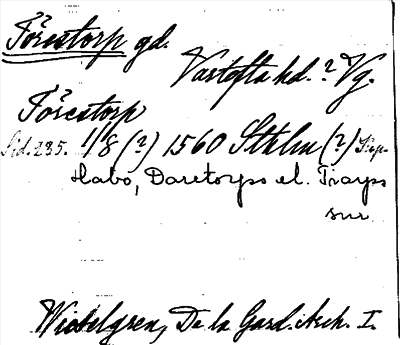 Förestorp gd.
Vartofta hd. ? Vg.
Förestorp
Sid. 235. 1/8 (?) 1560 Sthlm (?)
Habo, Daretorps el.
sn.
Wieselgren, De la Gard. Arch. I.